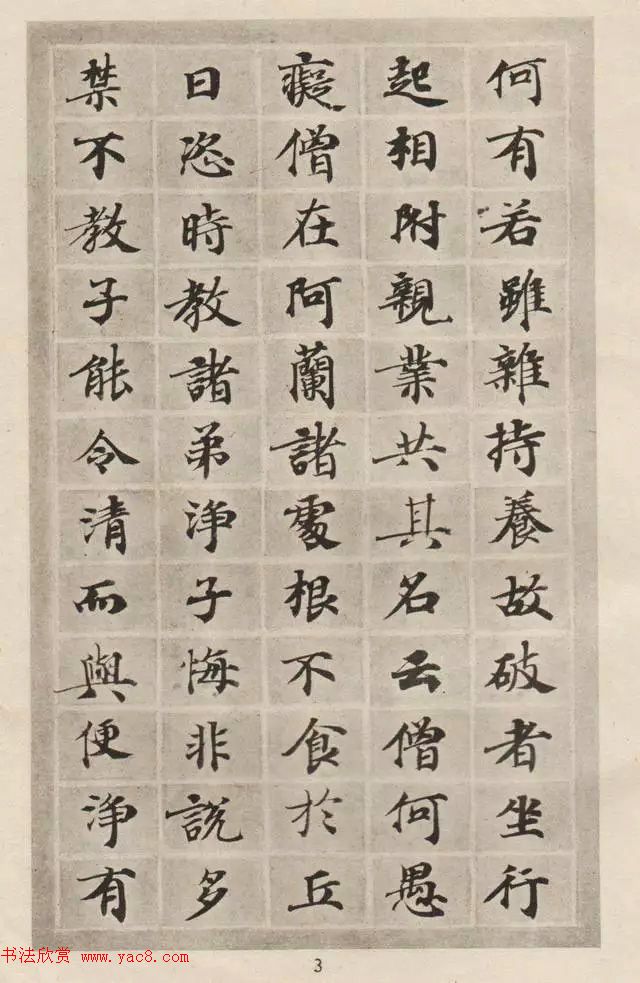 何有若雖雜持養故破者坐行
起相附親業共其名云僧何愚
癡僧在阿蘭諸處根不食於丘
日恣時教諸弟淨子悔非說多
禁不教子能令清而與便淨有
书法欣赏 www.yac8.com
3